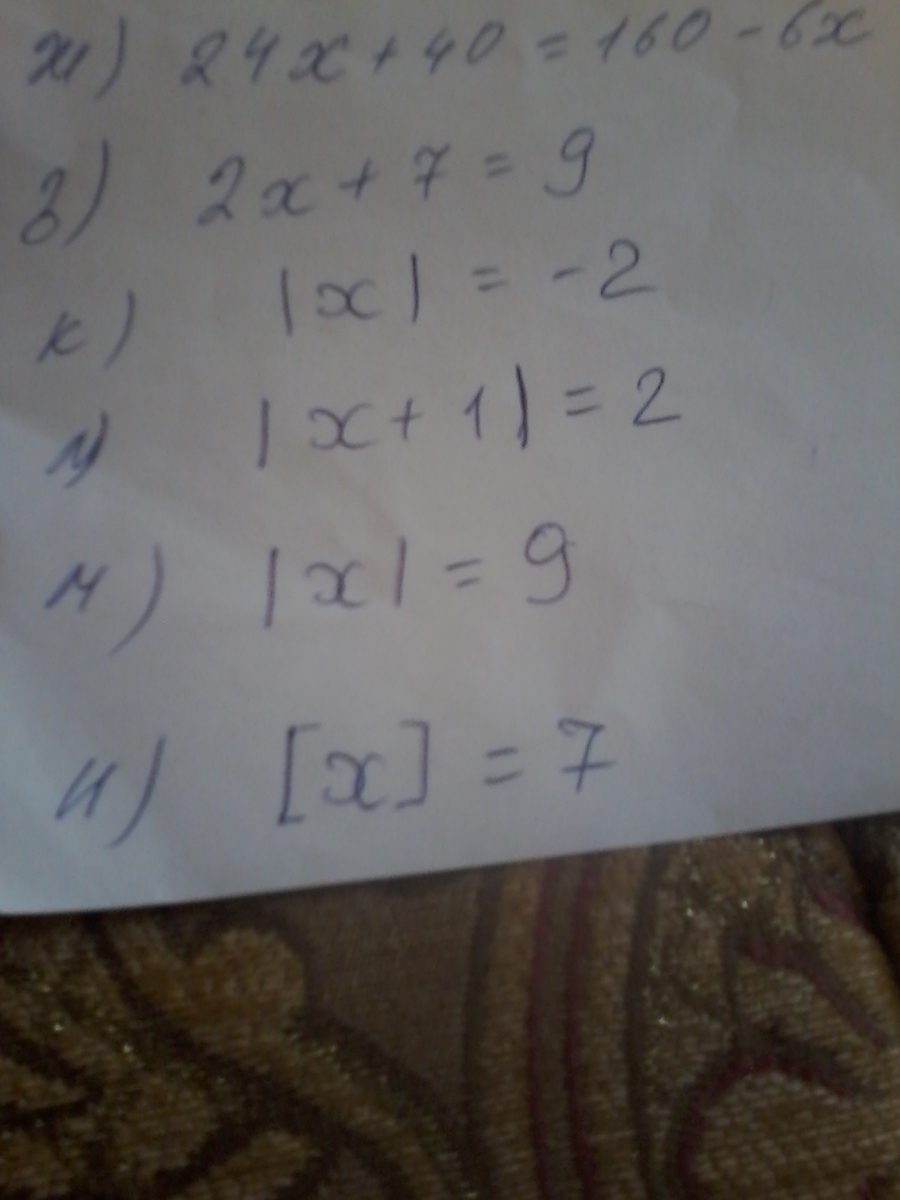 ж) 24x + 40 = 160 - 6x
з) 2x + 7 = 9
к) |x| = -2
л) |x + 1| = 2
м) |x| = 9
н) [x] = 7